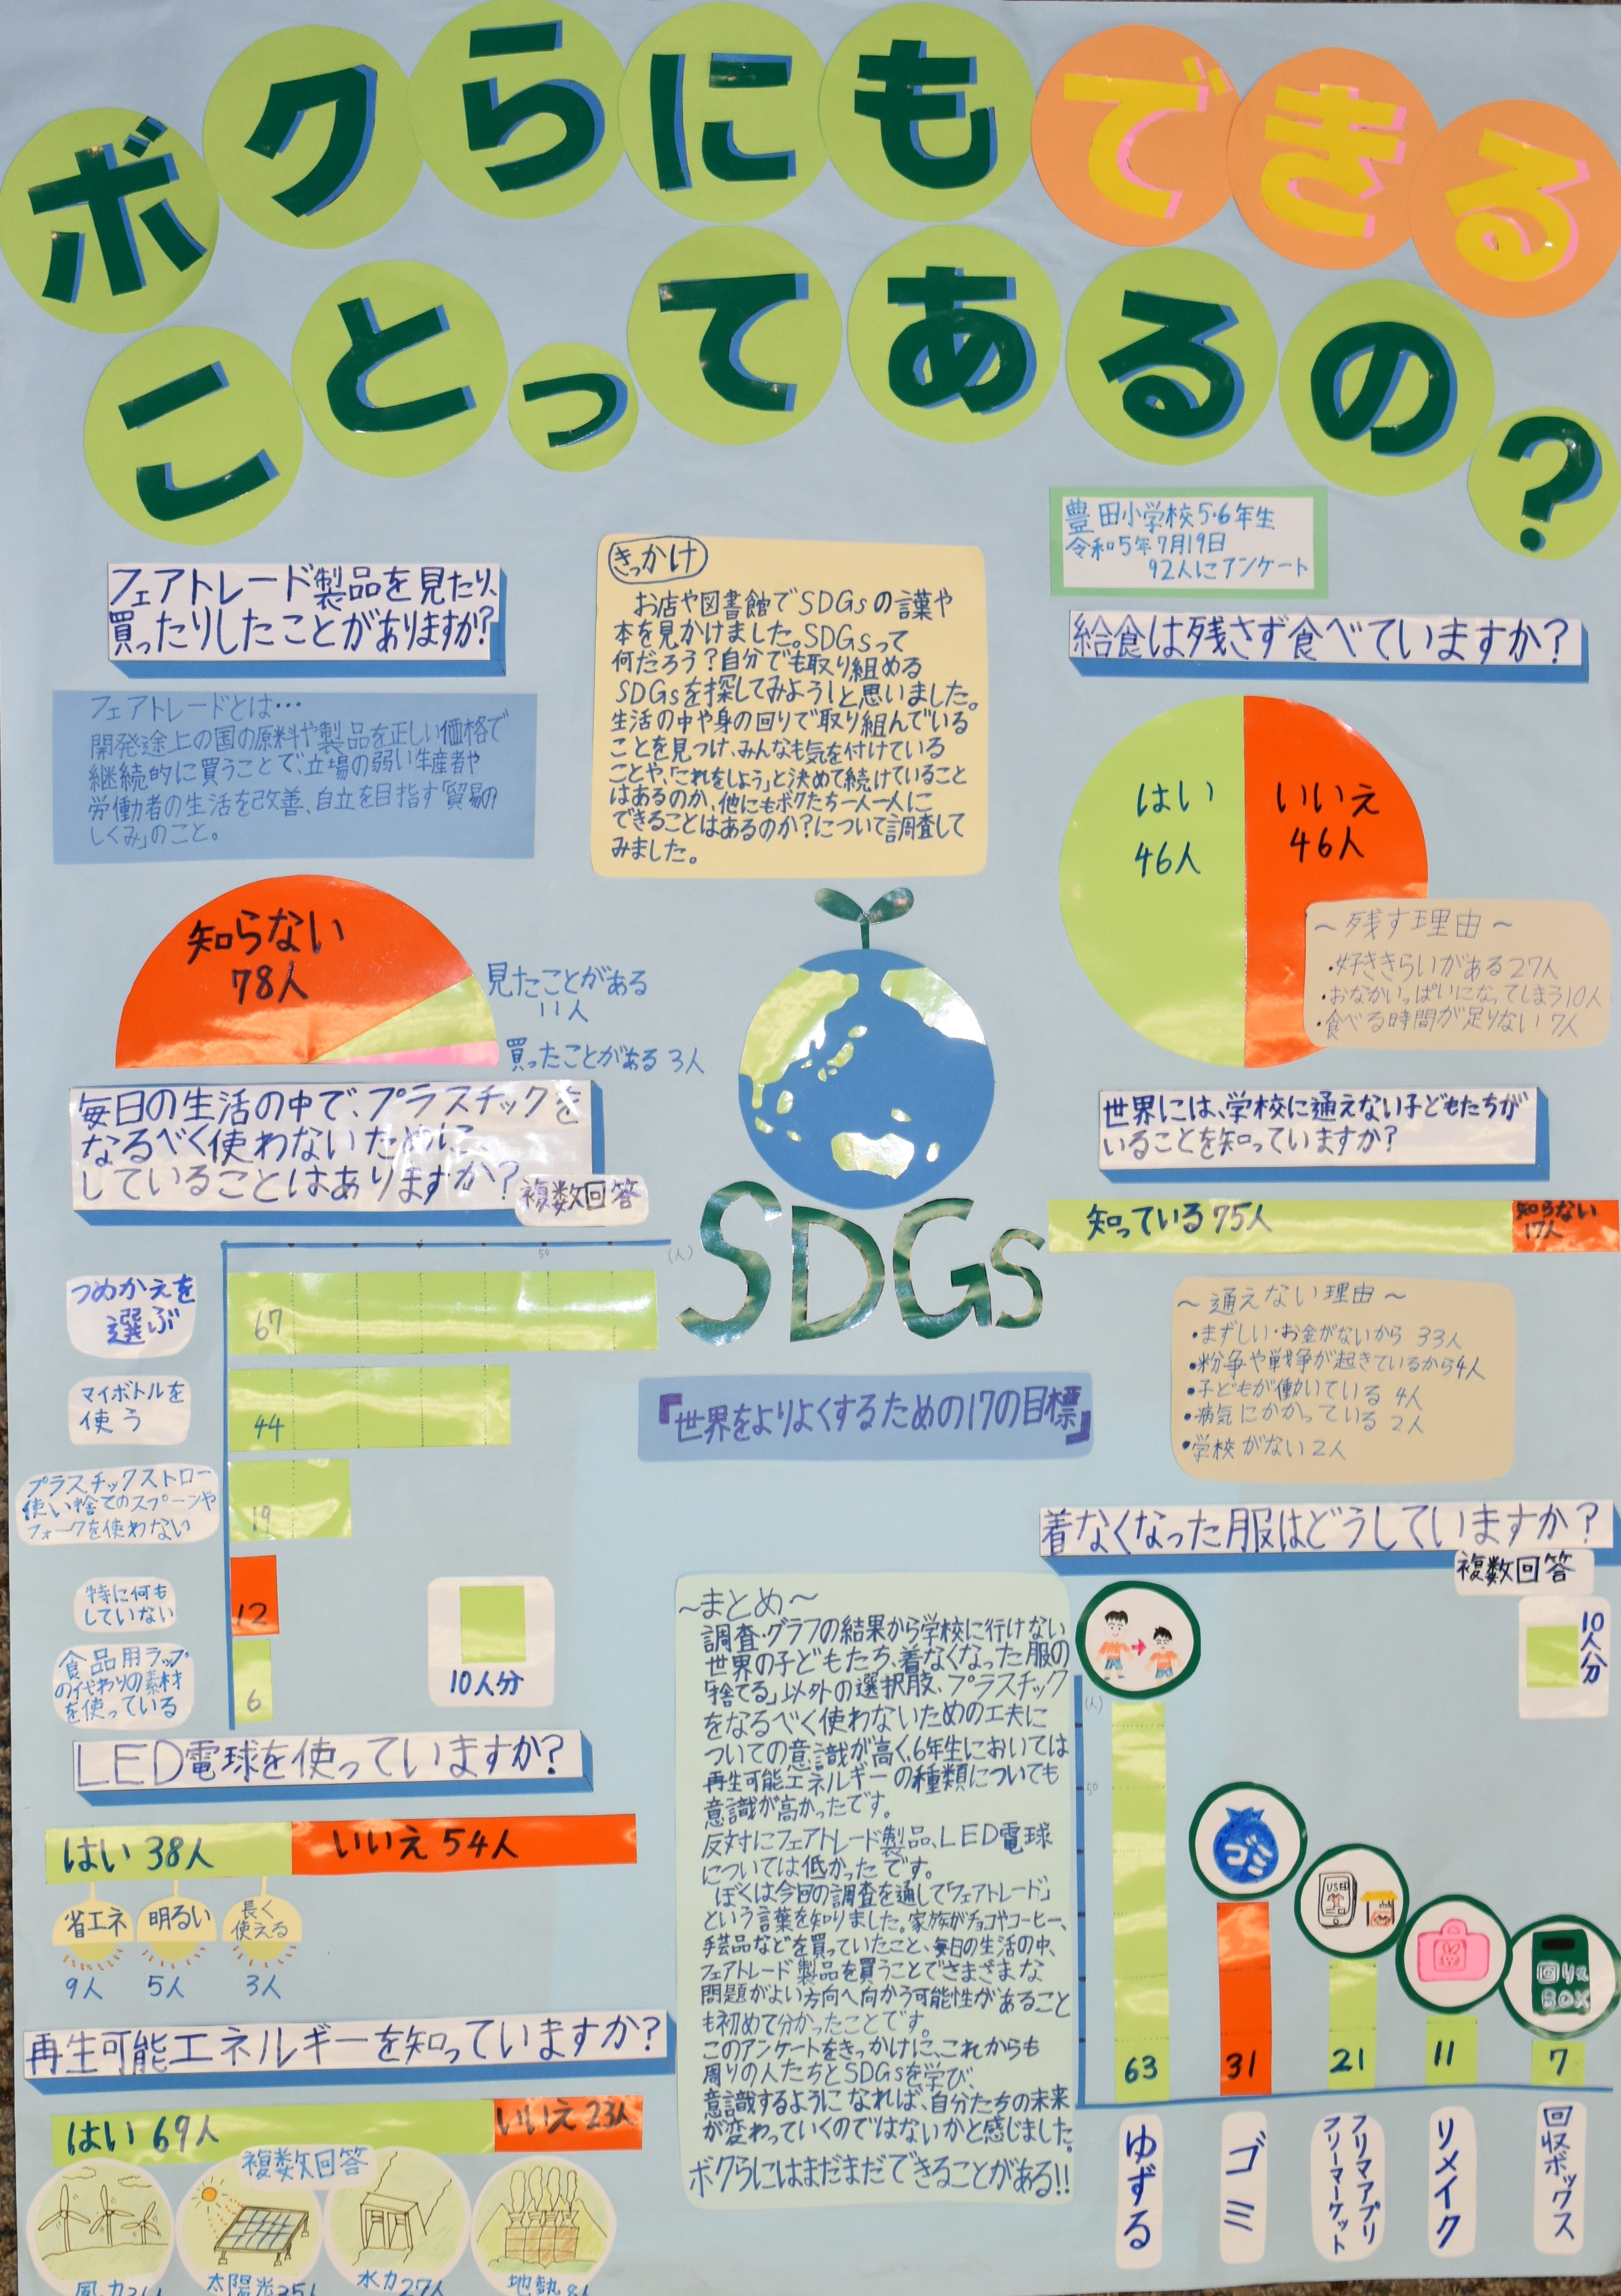 ボクらにもできる
ことってあるの?
豊田小学校5・6年生
令和5年7月19日
92人にアンケート
きっかけ
お店や図書館でSDGsの言葉や
本を見かけました。SDGsって
何だろう?自分でも取り組める
SDGsを探してみよう!と思いました。
生活の中や身の回りで取り組んでいる
ことを見つけ、みんなも気を付けている
ことや、「これをしよう」と決めて続けていること
はあるのか、他にもボクたち一人一人に
できることはあるのか?について調査して
みました。
フェアトレード製品を見たり、
買ったりしたことがありますか?
フェアトレードとは…
開発途上の国の原料や製品を正しい価格で
継続的に買うことで、立場の弱い生産者や
労働者の生活を改善、自立を目指す「貿易の
しくみ」のこと。
知らない
78人
見たことがある
11人
買ったことがある 3人
毎日の生活の中で、プラスチックを
なるべく使わないために、
していることはありますか?
複数回答
50
(人)
つめかえを
選ぶ
67
マイボトルを
使う
44
プラスチックストロー
使い捨てのスプーンや
フォークを使わない
19
特に何も
していない
12
食品用ラップ
の代わりの素材
を使っている
6
10人分
LED電球を使っていますか?
はい 38人
いいえ 54人
省エネ
明るい
長く
使える
9人
5人
3人
再生可能エネルギーを知っていますか?
はい 69人
いいえ 23人
複数回答
太陽光35人
水力27人
SDGs
『世界をよりよくするための17の目標』
~まとめ~
調査・グラフの結果から学校に行けない
世界の子どもたち、着なくなった服の
「捨てる」以外の選択肢、プラスチック
をなるべく使わないための工夫に
ついての意識が高く、6年生においては
再生可能エネルギーの種類についても
意識が高かったです。
反対にフェアトレード製品、LED電球
については低かったです。
ぼくは今回の調査を通して「フェアトレード」
という言葉を知りました。家族がチョコやコーヒー、
手芸品などを買っていたこと、毎日の生活の中、
フェアトレード製品を買うことでさまざまな
問題がよい方向へ向かう可能性があること
も初めて分かったことです。
このアンケートをきっかけに、これからも
周りの人たちとSDGsを学び、
意識するようになれば、自分たちの未来
が変わっていくのではないかと感じました。
ボクらにはまだまだできることがある!!
給食は残さず食べていますか?
はい
46人
いいえ
46人
~残す理由~
・好ききらいがある27人
・おなかいっぱいになってしまう10人
・食べる時間が足りない 7人
世界には、学校に通えない子どもたちが
いることを知っていますか?
知っている 75人
知らない
17人
~通えない理由~
・まずしい・お金がないから 33人
・紛争や戦争が起きているから4人
・子どもが働いている 4人
・病気にかかっている 2人
・学校がない 2人
着なくなった服はどうしていますか?
複数回答
10人分
(人)
50
ゴミ
USED
回収
BOX
63
31
21
11
7
ゆずる
ゴミ
フリマアプリ
フリーマーケット
リメイク
回収ボックス